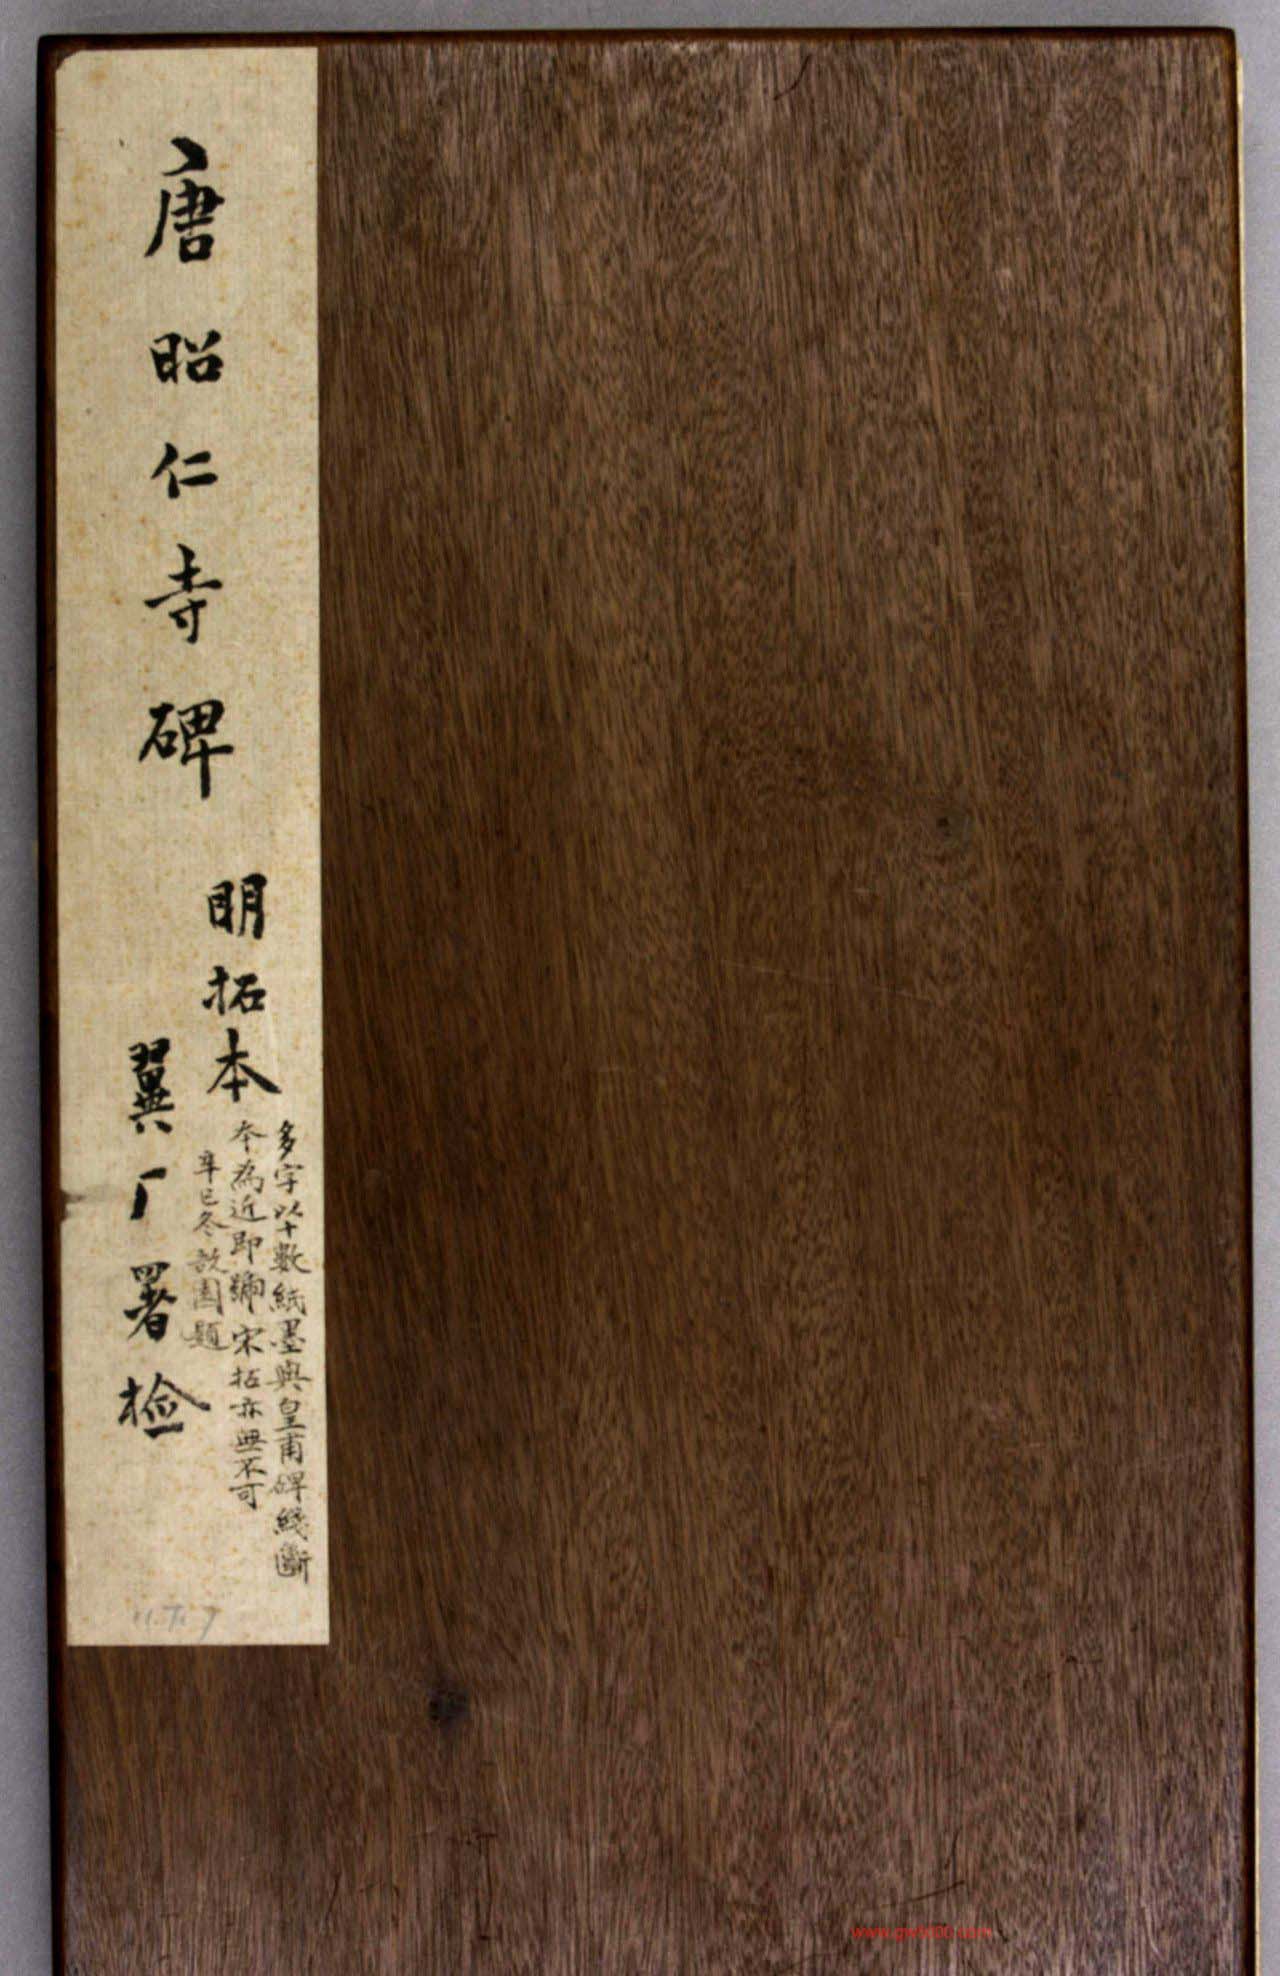 唐昭仁寺碑
明拓本
多字以十數紙墨與皇甫碑綫斷
本為近即號宋拓亦無不可
辛巳冬園題
翼厂署檢
www.gw5000.com